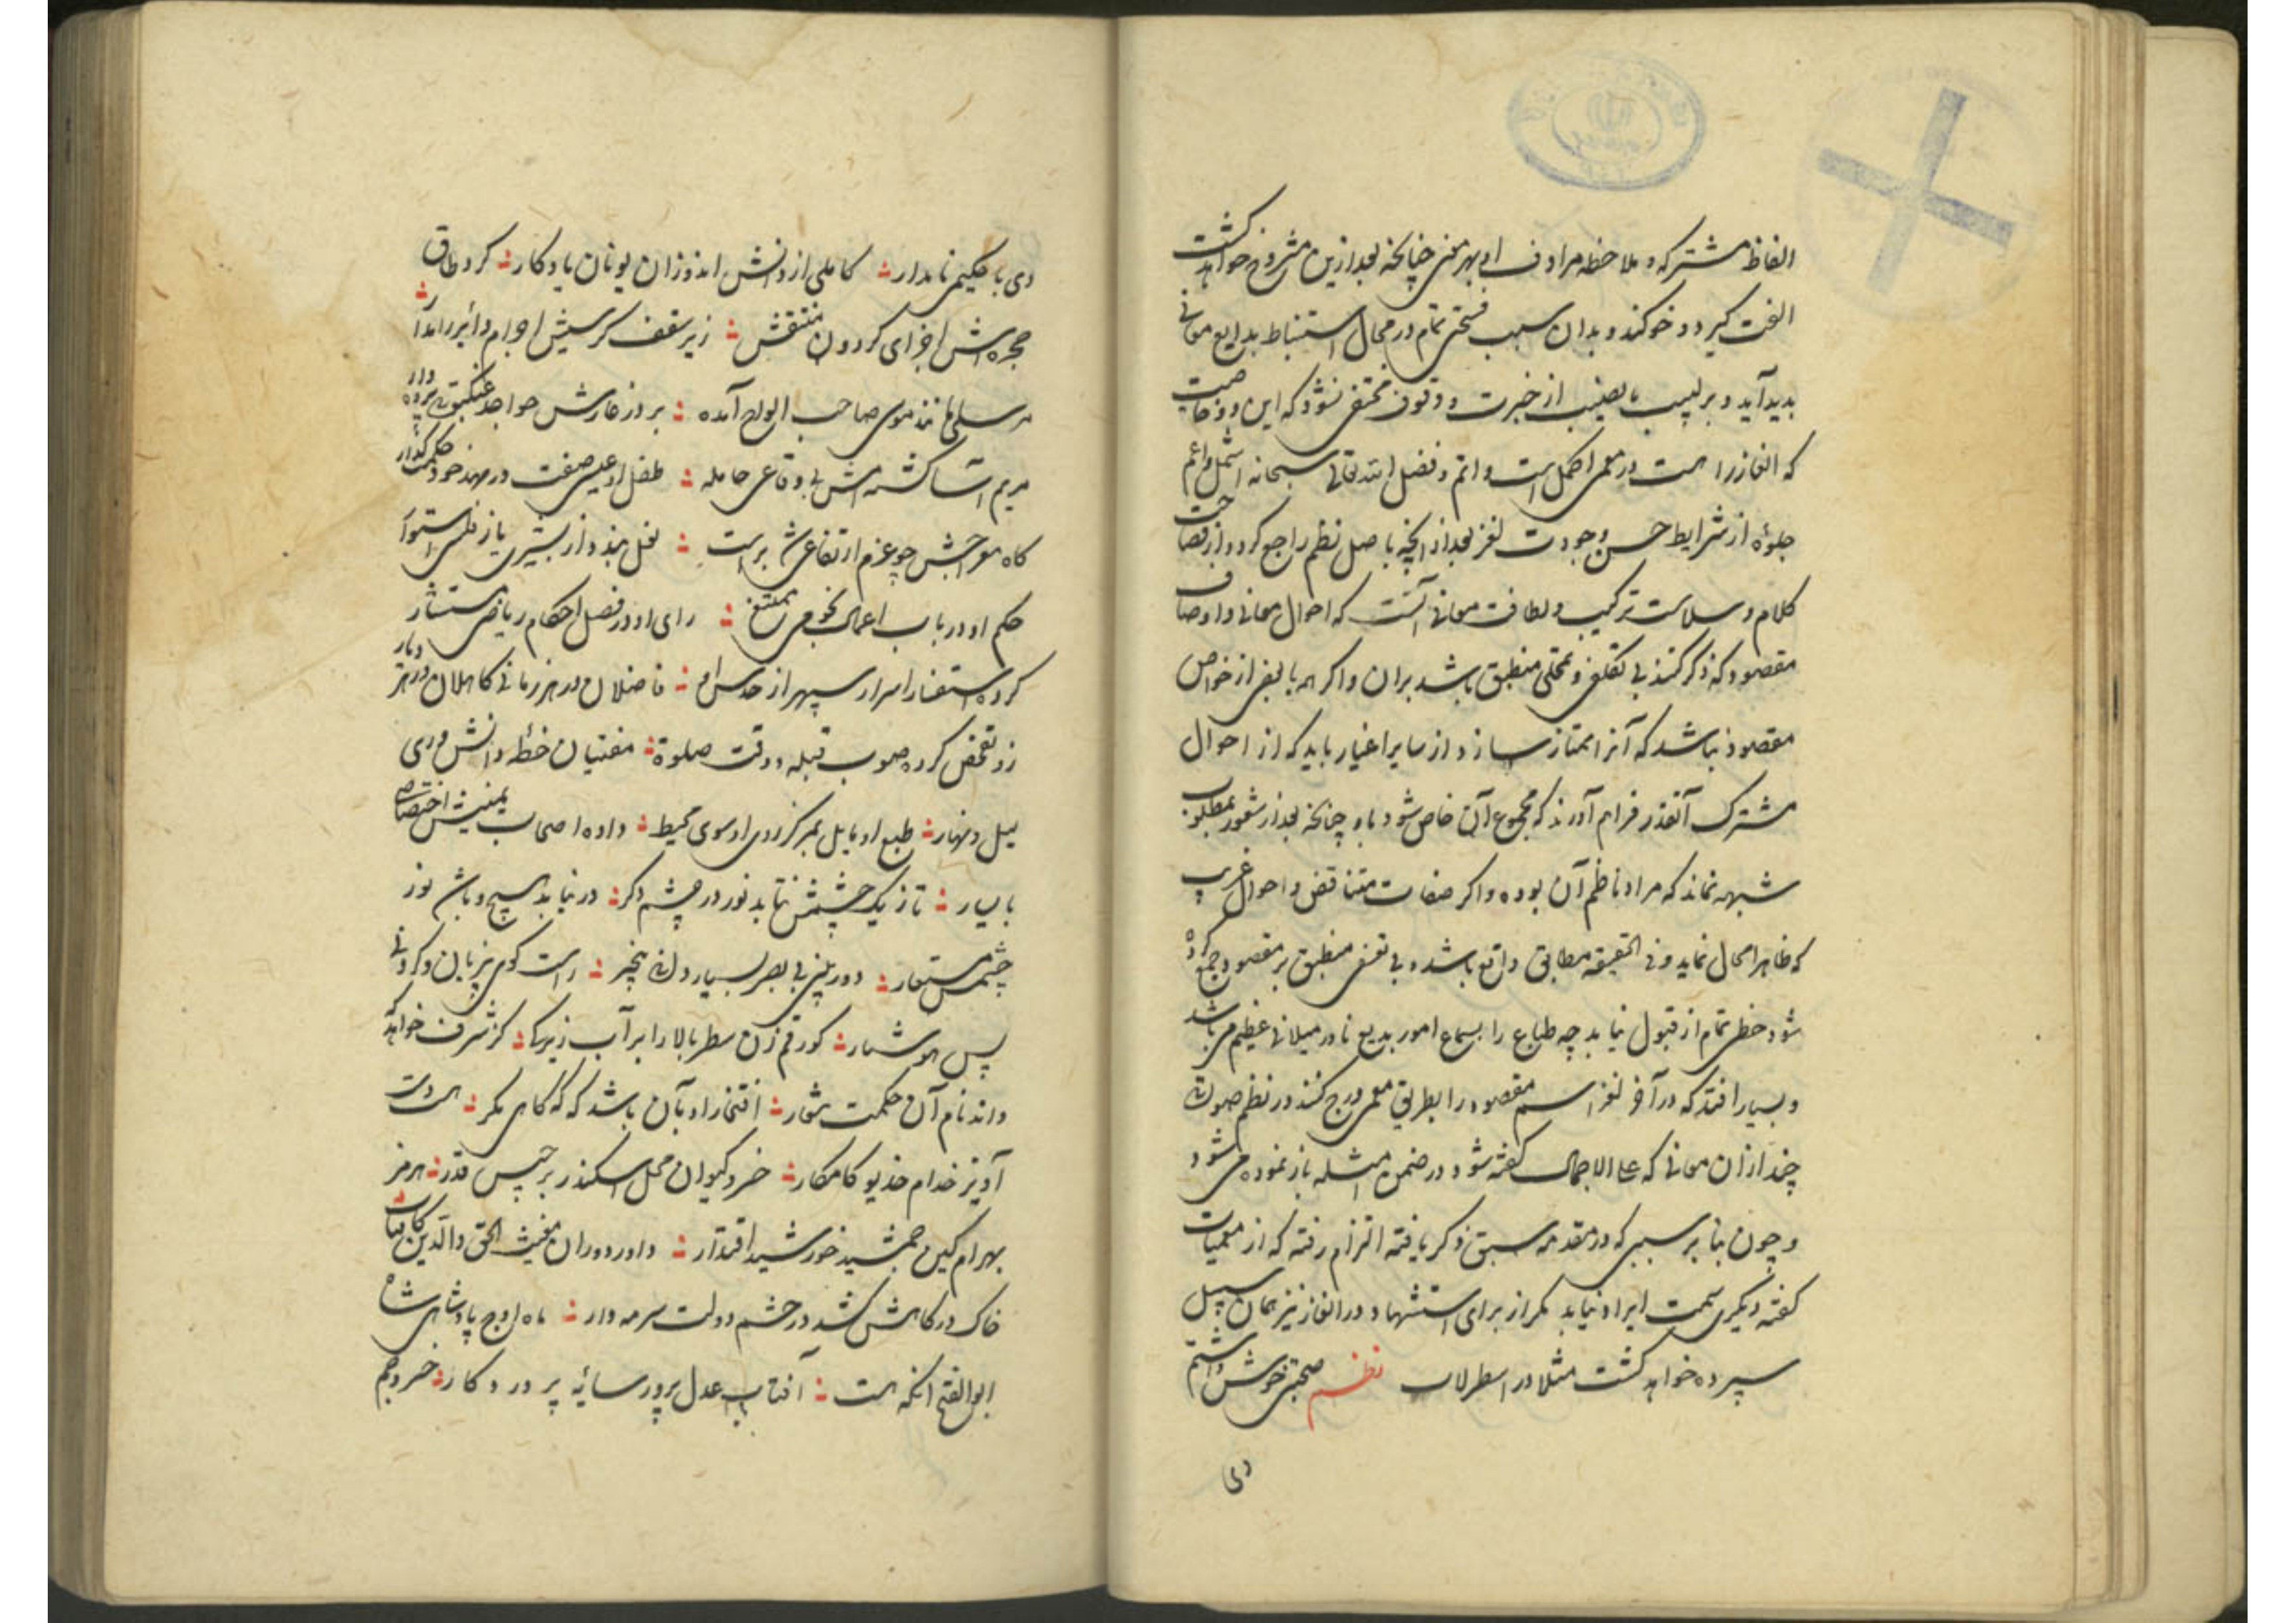 الفاظ مشترکه و ملاحظه مرادف او بهر معنی چنانچه بعد ازین مشروح خواهد گشت
الفت گیرد و خو کند و بدان سبب فسحتی تمام در مجال استنباط بدایع معانی
پدید آید و بر لبیب با نصیب از خبرت و وقوف مختفی نشود که این دو خاصیت
که الغاز را هست در معمی اکمل است و اتم و فضل الله تعالی سبحانه اشمل و اعم
جلوه از شرایط حسن و جودت لغز بعد از آنچه باصل نظم راجع گردد از فصاحت
کلام و سلاست ترکیب و لطافت معانی آنست که احوال معانی و اوصاف
مقصود که ذکر کنند بی تکلف و تمحلی منطبق باشد بران و اگر همه یا بعضی از خواص
مقصود نباشد که آنرا ممتاز سازد از سایر اغیار باید که از احوال
مشترک آنقدر فراهم آورند که مجموع آن خاص شود باو چنانچه بعد از شعور بمطلوب
شبهه نماند که مراد ناظم آن بوده و اگر صفات متناقض و احوال غریب
که ظاهرا محال نماید و فی الحقیقه مطابق واقع باشد و بی تعسفی منطبق بر مقصود جمع کرده
شود حظی تمام از قبول نیابد چه طباع را بسماع امور بدیع نادر میلانی عظیم می باشد
و بسیار افتد که در آخر لغز اسم مقصود را بطریق معمی درج کنند در نظم صورت
چند از آن معانی که علی الاجمال گفته شود در ضمن امثله باز نموده می شود
و چون بنابر سببی که در مقدمه سبق ذکر یافته التزام رفته که از معمیات
گفته دیگری سمت ایراد نیابد مگر از برای استشهاد در الغاز نیز همان سبیل
سپرده خواهد گشت مثلا در اسطرلاب نظم صحبتی خوش داشتم
دی
دی با حکیمی نامدار کاملی از دانش اندوزان یونان یادگار کرد طاق
حجره اش اجزای گردون منتقش زیر سقف کرسیش اجرام دائر را مدار
مرسلی مانند موسی صاحب الواح آمده بر در غارش چو احمد عنکبوتی پرده دار
مریم آسا گشته امش بی وقاعی حامله طفل او عیسی صفت در مهد خود حکمت گذار
گاه معراجش چو عزم ارتفاعی بر است نعل بندد از بشیری یا ز فلس استوار
حکم او در باب اعمال نجومی ممتحن رای او در فصل احکام ریاضی مستشار
کرده استفسار اسرار سپهر از حدس او فاضلان در هر زمانی کاملان در هر دیار
زو تفحص کرده صوب قبله و وقت صلوة مفتیان خطه دانش وری
لیل و نهار طبع او مایل بمرکز روی او سوی محیط داده اصحاب یمینش اختصاص
با یسار تا ز یک چشمش نتابد نور در چشم دگر در نیابد هیچ و باشد نور
چشمش مستعار دوربینی بی بصر بسیار دانی بیخبر راست گوی بی زبان و گردنی
پس هوشیار گو رقم زن سطر بالا را بر آب زیرکا کز شرف خواهد که
داند نام آن حکمت شعار افتخار او بآن باشد که گه گاهی مگر هست دست
آویز خدام خدیو کامکار خسرو کیوان محل اسکندر برجیس قدر هرمز
بهرام کین جمشید خورشید اقتدار داور دوران مغیث الحق والدین کاسمان
خاک درگاهش کشد در چشم دولت سرمه وار ماه اوج پادشاهی شاه
ابوالفتح آنکه هست آفتاب عدل پرور سایه پروردگار خسرو جم